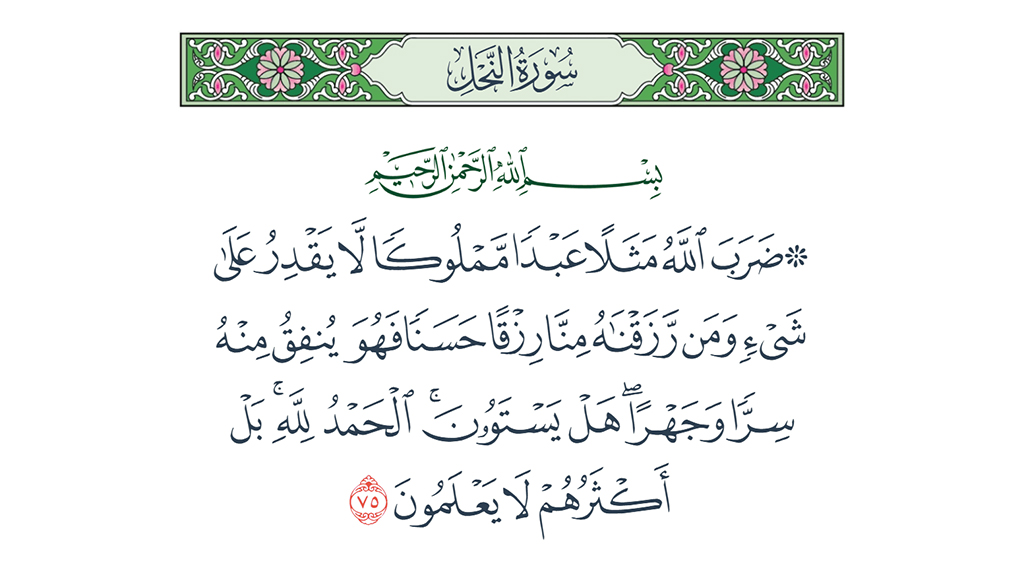 سُورَةُ النَّحْلِ
بِسْمِ ٱللَّهِ ٱلرَّحْمَٰنِ ٱلرَّحِيمِ
۞ ضَرَبَ ٱللَّهُ مَثَلًا عَبْدًا مَّمْلُوكًا لَّا يَقْدِرُ عَلَىٰ
شَىْءٍ وَمَن رَّزَقْنَٰهُ مِنَّا رِزْقًا حَسَنًا فَهُوَ يُنفِقُ مِنْهُ
سِرًّا وَجَهْرًا ۖ هَلْ يَسْتَوُۥنَ ۚ ٱلْحَمْدُ لِلَّهِ ۚ بَلْ
أَكْثَرُهُمْ لَا يَعْلَمُونَ ٧٥